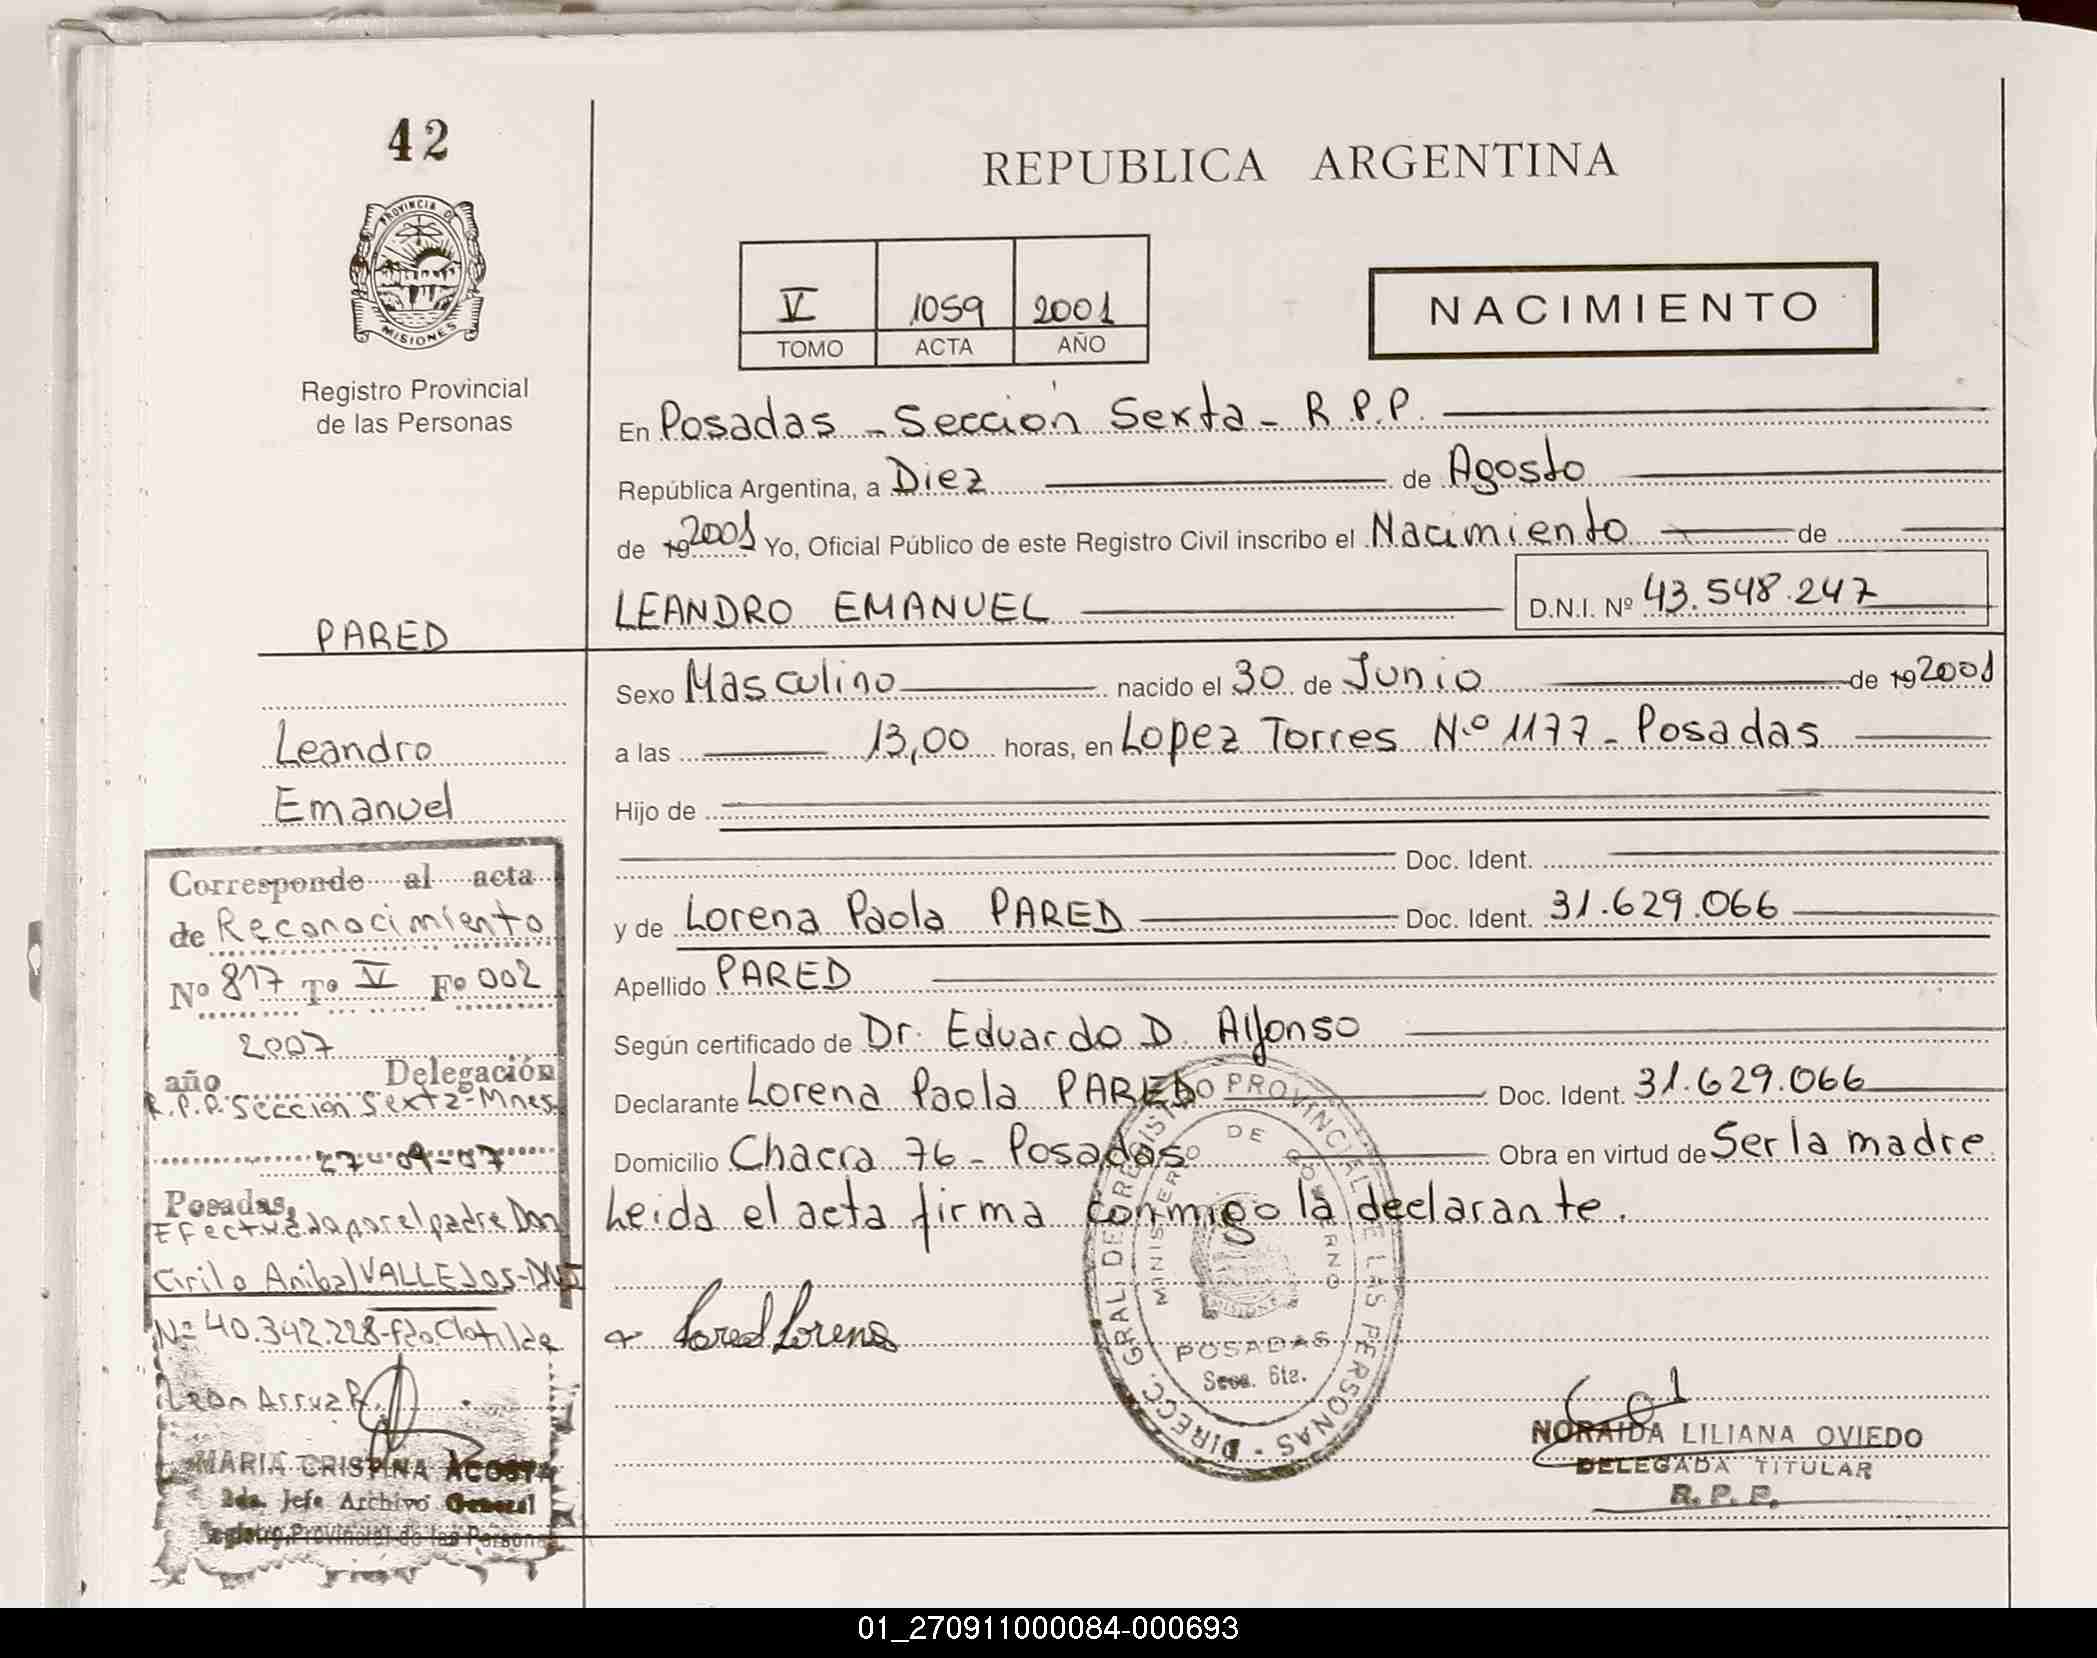 42
PROVINCIA DE
MISIONES
Registro Provincial
de las Personas
REPUBLICA ARGENTINA
V 1059 2001
TOMO ACTA AÑO
NACIMIENTO
En Posadas - Sección Sexta - R.P.P.
República Argentina, a Diez de Agosto
de 19 2001 Yo, Oficial Público de este Registro Civil inscribo el Nacimiento de
LEANDRO EMANUEL D.N.I. Nº 43.548.247
PARED
Leandro
Emanuel
Sexo Masculino nacido el 30 de Junio de 19 2001
a las 13,00 horas, en Lopez Torres N.º 1177 - Posadas
Hijo de
Doc. Ident.
y de Lorena Paola PARED Doc. Ident. 31.629.066
Apellido PARED
Según certificado de Dr. Eduardo D. Alfonso
Declarante Lorena Paola PARED Doc. Ident. 31.629.066
Domicilio Chacra 76 - Posadas Obra en virtud de Ser la madre
Leida el acta firma conmigo la declarante.
Pared Lorena
Corresponde al acta
de Reconocimiento
Nº 817 Tº V Fº 002
2007
año Delegación
R.P.P. Sección Sexta - Mnes.
27-09-07
Posadas,
Efectuada por el padre Don
Cirilo Anibal VALLEJOS - DNI
Nº 40.342.228 - Fdo. Clotilde
Leon
MARIA CRISTINA ACOSTA
2da. Jefe Archivo General
Registro Provincial de las Personas
DIRECC. GRAL. DE REGISTRO PROVINCIAL DE LAS PERSONAS
MINISTERIO DE GOBIERNO
MISIONES
POSADAS
Secc. 6ta.
NORAIDA LILIANA OVIEDO
DELEGADA TITULAR
R.P.P.
01_270911000084-000693